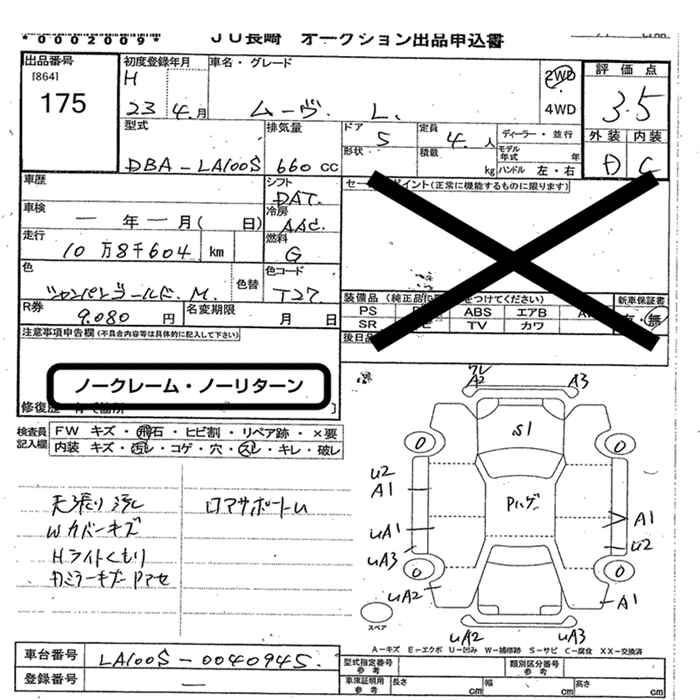 *0002009*
JU長崎 オークション出品申込書
出品番号
[864]
175
初度登録年月
H
23 4.月
車名・グレード
ムーヴ. L.
2WD
4WD
評価点
3.5
外装 内装
D C
型式
DBA-LA100S
排気量
660 cc
ドア
5
形状
定員
4. 人
積載
kg
ディーラー・並行
モデル年式 年
ハンドル 左・右
車歴
シフト
DAT.
車検
一 年 一 月( 日)
冷房
AAC.
走行
10万8千604 km
燃料
G
色
シャンパンゴールド.M.
色替
色コード
T27
R券
9.080 円
名変期限
月 日
注意事項申告欄(不具合内容等は具体的に記入して下さい)
ノークレーム・ノーリターン
(正常に機能するものに限ります)
装備品
をつけてください)
新車保証書
PS
ABS
エアB
SR
TV
カワ
無
後日
検査員記入欄
FW キズ・飛石・ヒビ割・リペア跡・×要
内装 キズ・汚レ・コゲ・穴・スレ・キレ・破レ
天張り汚レ
Wカバーキズ
Hライトくもり
ロアサポートU
A2
A3
S1
0
0
U2
A1
Pハゲ
UA1
UA3
A1
U2
0
0
UA2
A1
スペア
UA2
UA3
A-キズ E-エクボ U-凹み W-補修跡 S-サビ C-腐食 XX-交換済
車台番号
LA100S-0040945.
登録番号
一
型式指定番号
参考
類別区分番号
参考
車庫証明用
参考
長さ
cm
幅
cm
高さ
cm